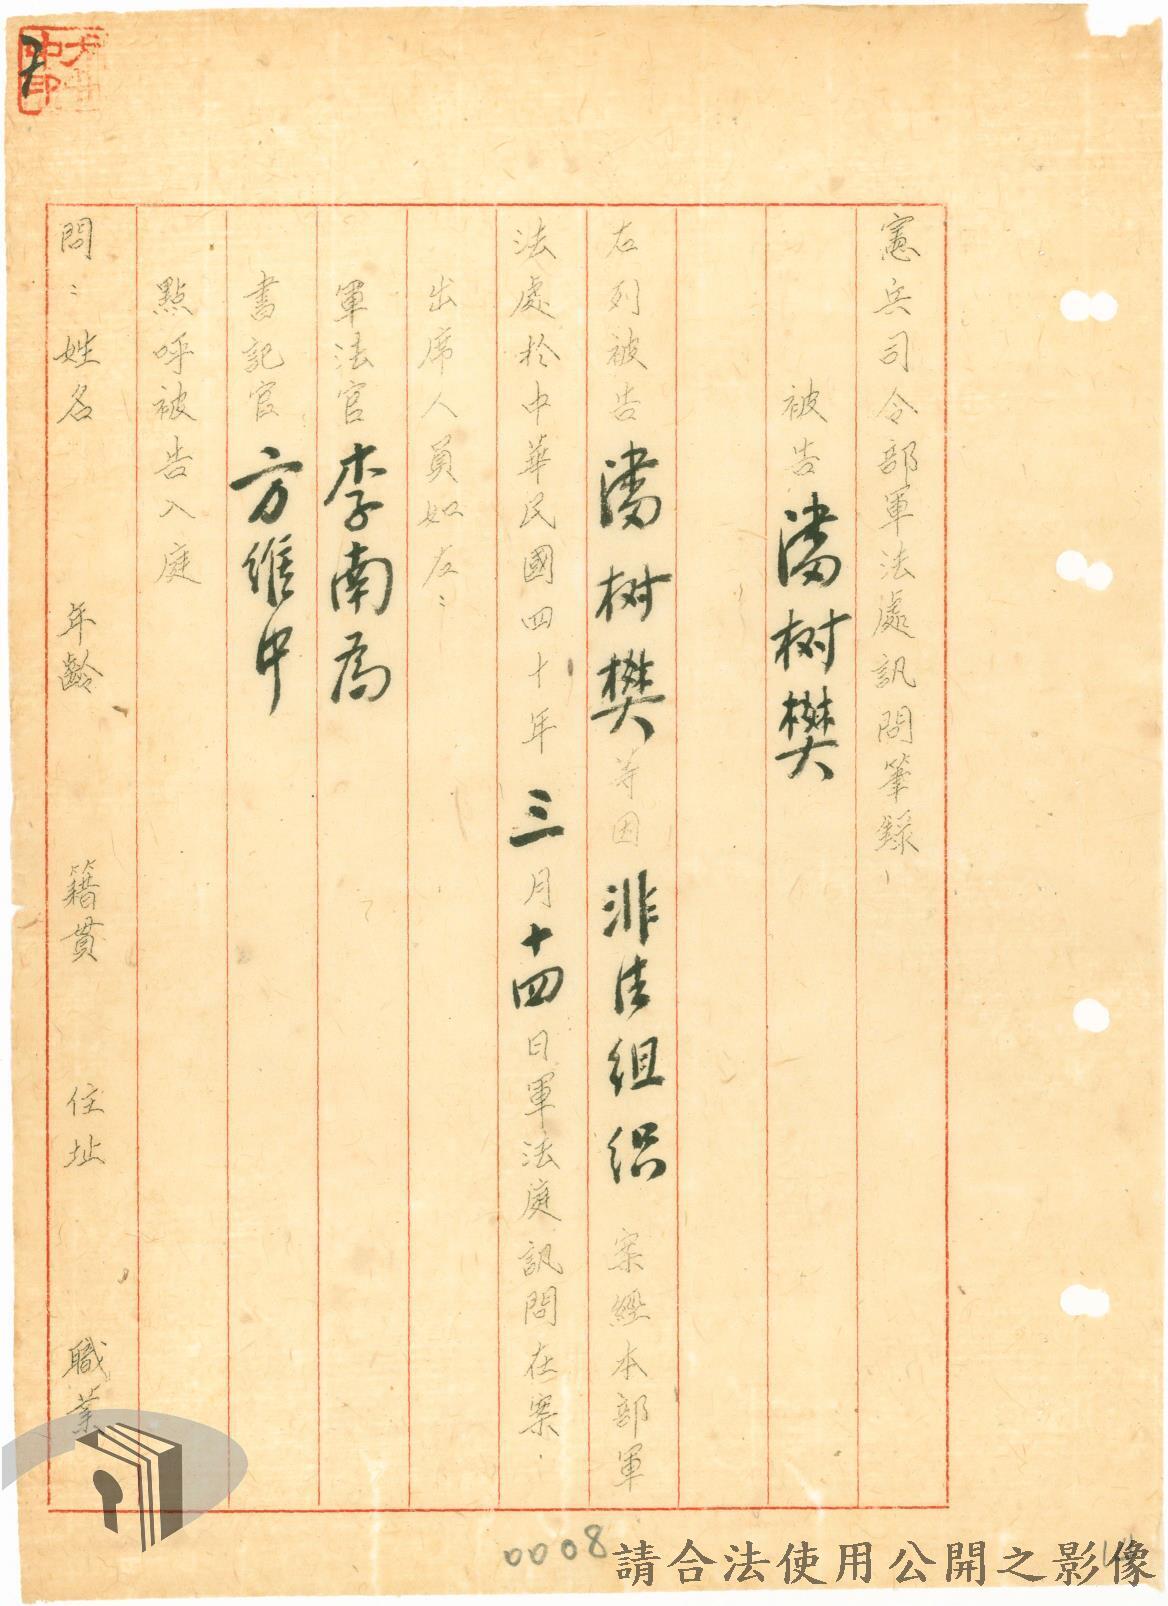 憲兵司令部軍法處訊問筆錄
被告潘树樊
右列被告潘树樊等因非法組织案經本部軍
法處於中華民國四十年三月十四日軍法庭訊問在案
出席人員如左：
軍法官李南为
書記官方維中
點呼被告入庭
問：姓名 年齡 籍貫 住址 職業
0008
請合法使用公開之影像